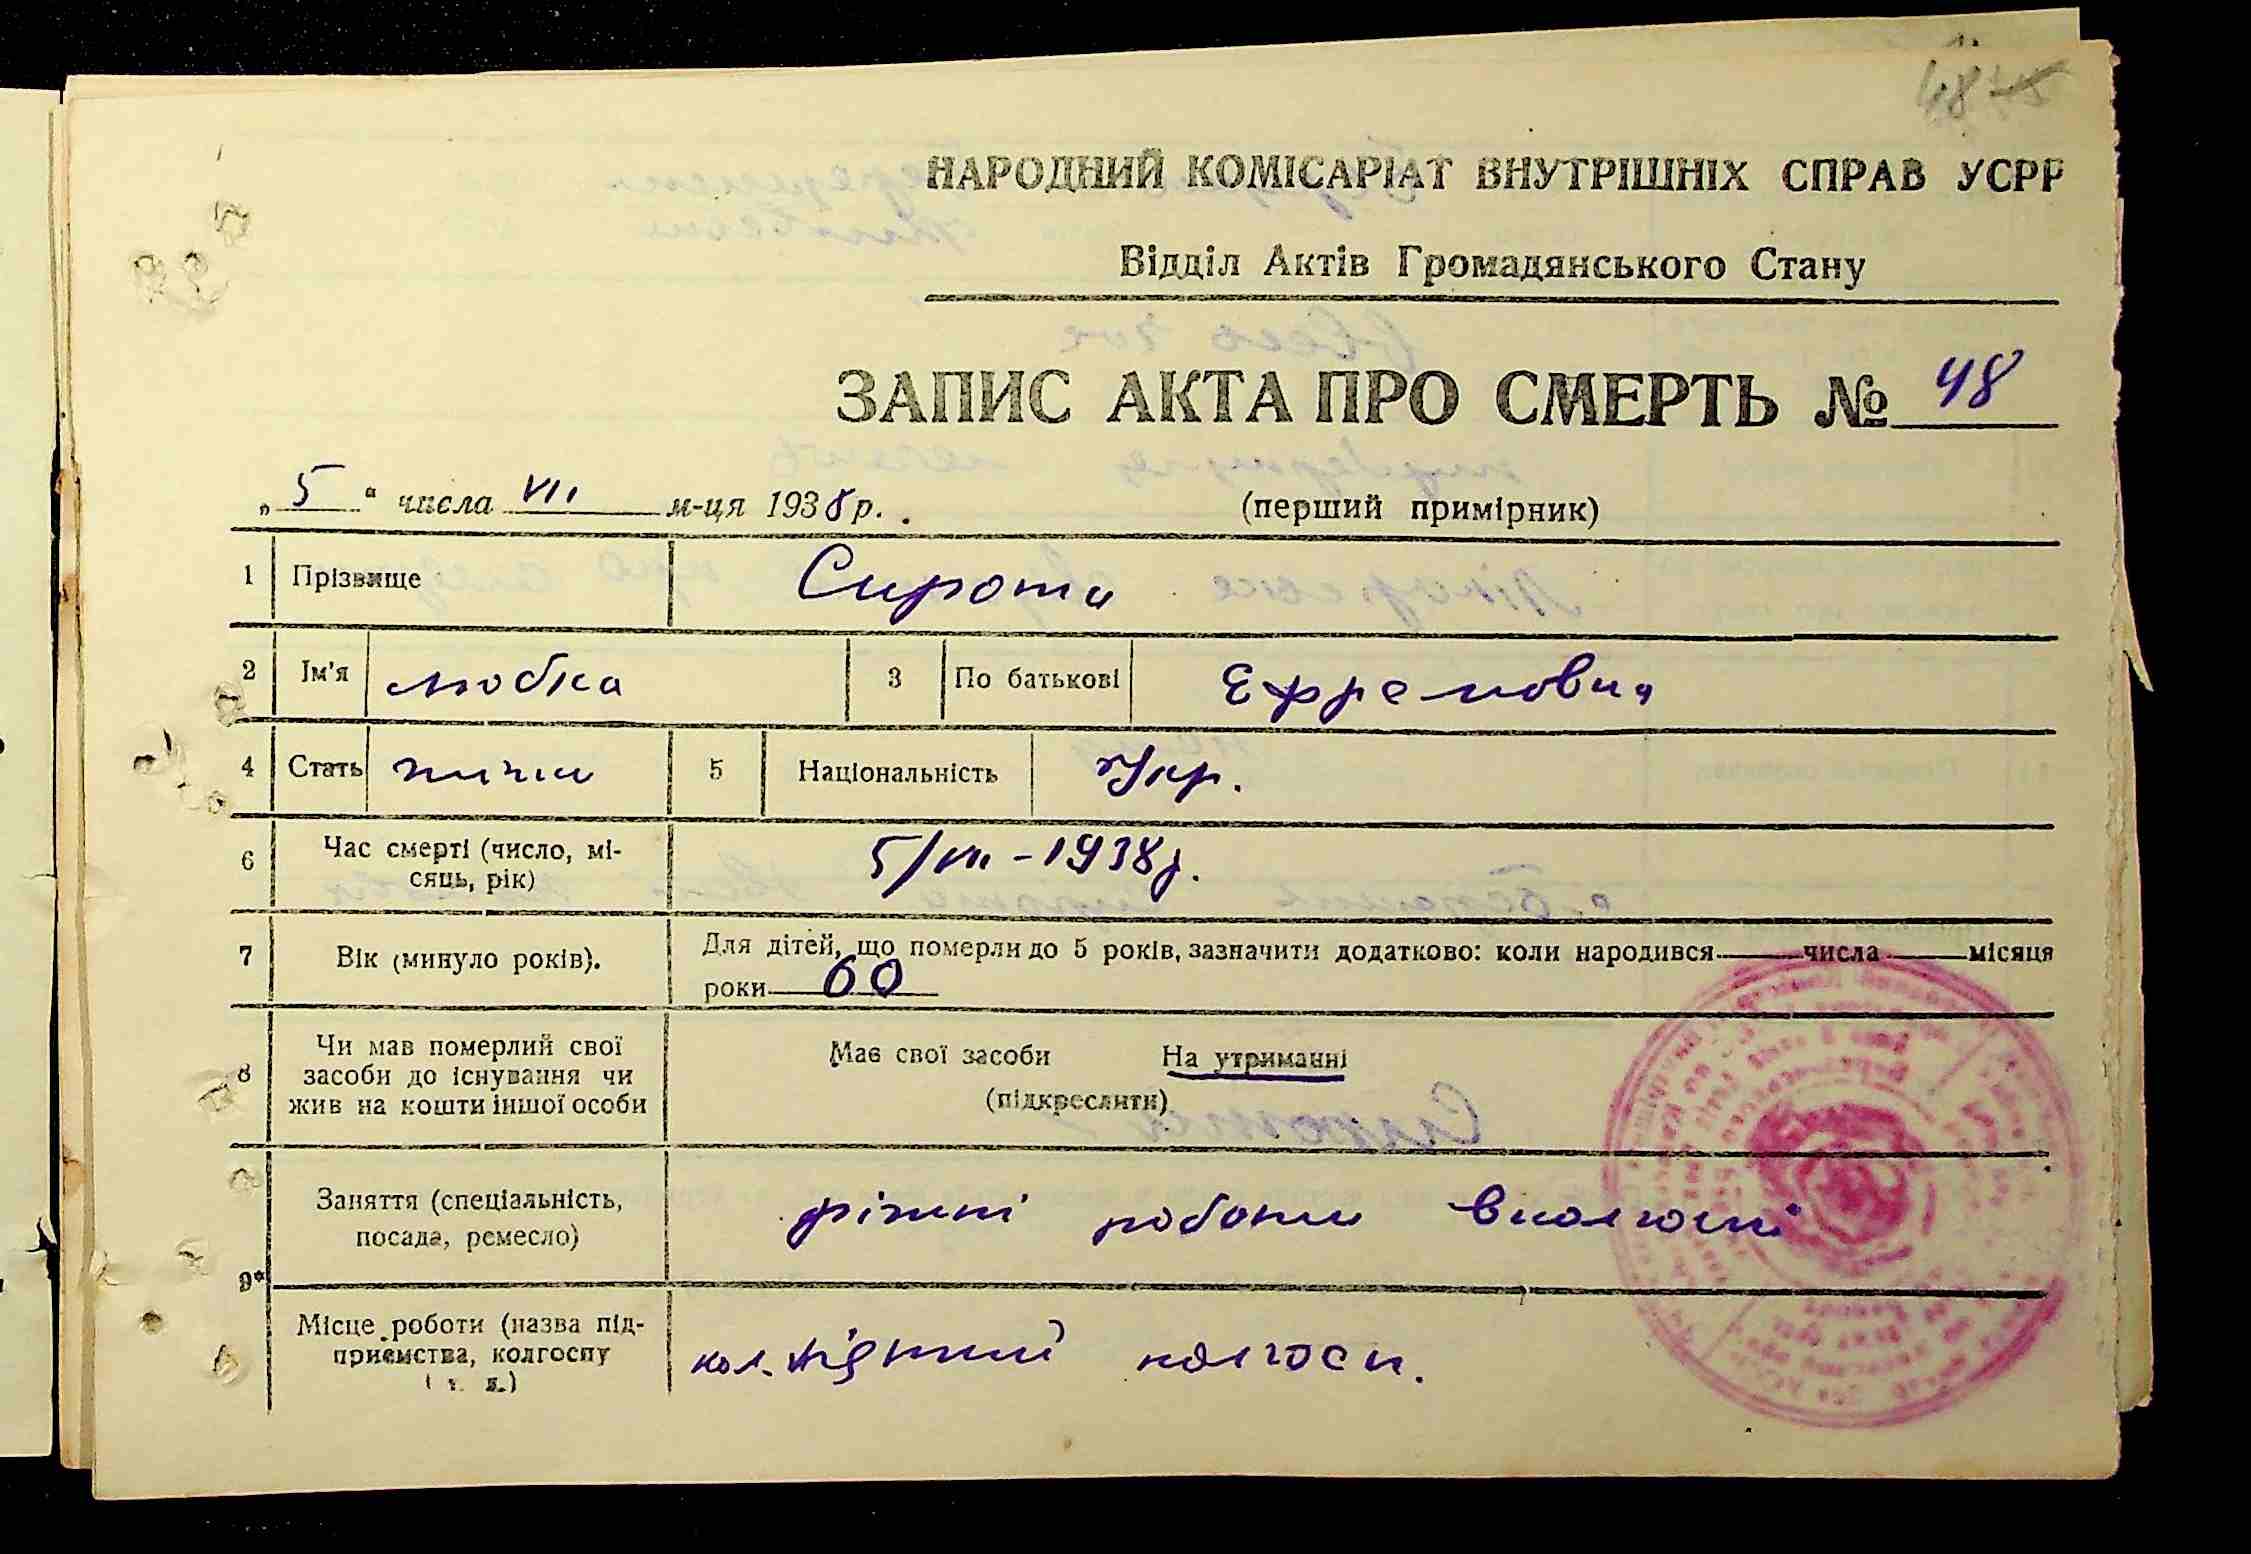 48
НАРОДНИЙ КОМІСАРІАТ ВНУТРІШНІХ СПРАВ УСРР
Відділ Актів Громадянського Стану
ЗАПИС АКТА ПРО СМЕРТЬ № 48
„ 5 “ числа VII м-ця 1938 р.
(перший примірник)
1 Прізвище Сирота
2 Ім'я Любка 3 По батькові Ефремовна
4 Стать 5 Національність Укр.
6 Час смерті (число, мі-
сяць, рік) 5/VII - 1938 р.
7 Вік (минуло років). Для дітей, що померли до 5 років, зазначити додатково: коли народився числа місяця
роки 60
8 Чи мав померлий свої
засоби до існування чи
жив на кошти іншої особи
Має свої засоби На утриманні
(підкреслити)
Заняття (спеціальність,
посада, ремесло) ріжні роботи в колгоспі
9*
Місце роботи (назва під-
приємства, колгоспу
і т. д.) колгосп.